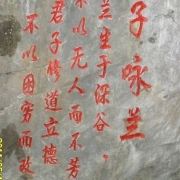 子咏兰
兰生于深谷，
不以无人而不芳
君子修道立德
不以困穷而改